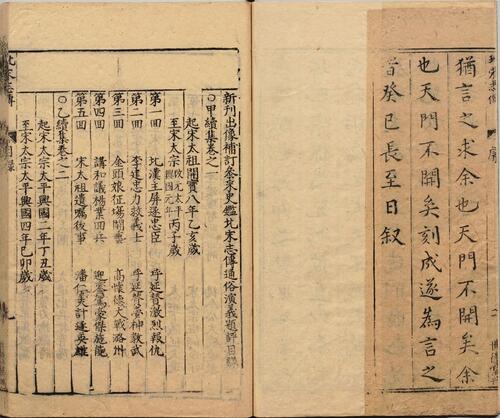 猶言之求余也天門不開矣余
也天門不開矣刻成遂為言之
昔癸巳長至日叙
新刊出像補訂參采史鑑北宋志傳通俗演義題評目錄
○甲續集卷之一
起宋太祖開寶八年乙亥歲
至宋太宗改元太平興國元年丙子歲
第一回 北漢主屏逐忠臣 呼延贊激烈報仇
第二回 李建忠力救義士 呼延贊夢神教武
第三回 金頭娘征場鬬藝 高懷德大戰潞州
第四回 講和議楊業回兵
第五回 宋太祖遺囑後事 潘仁美計逐英雄
○乙續集卷之二
起宋太宗太平興國二年丁丑歲
至宋太宗太平興國四年己卯歲